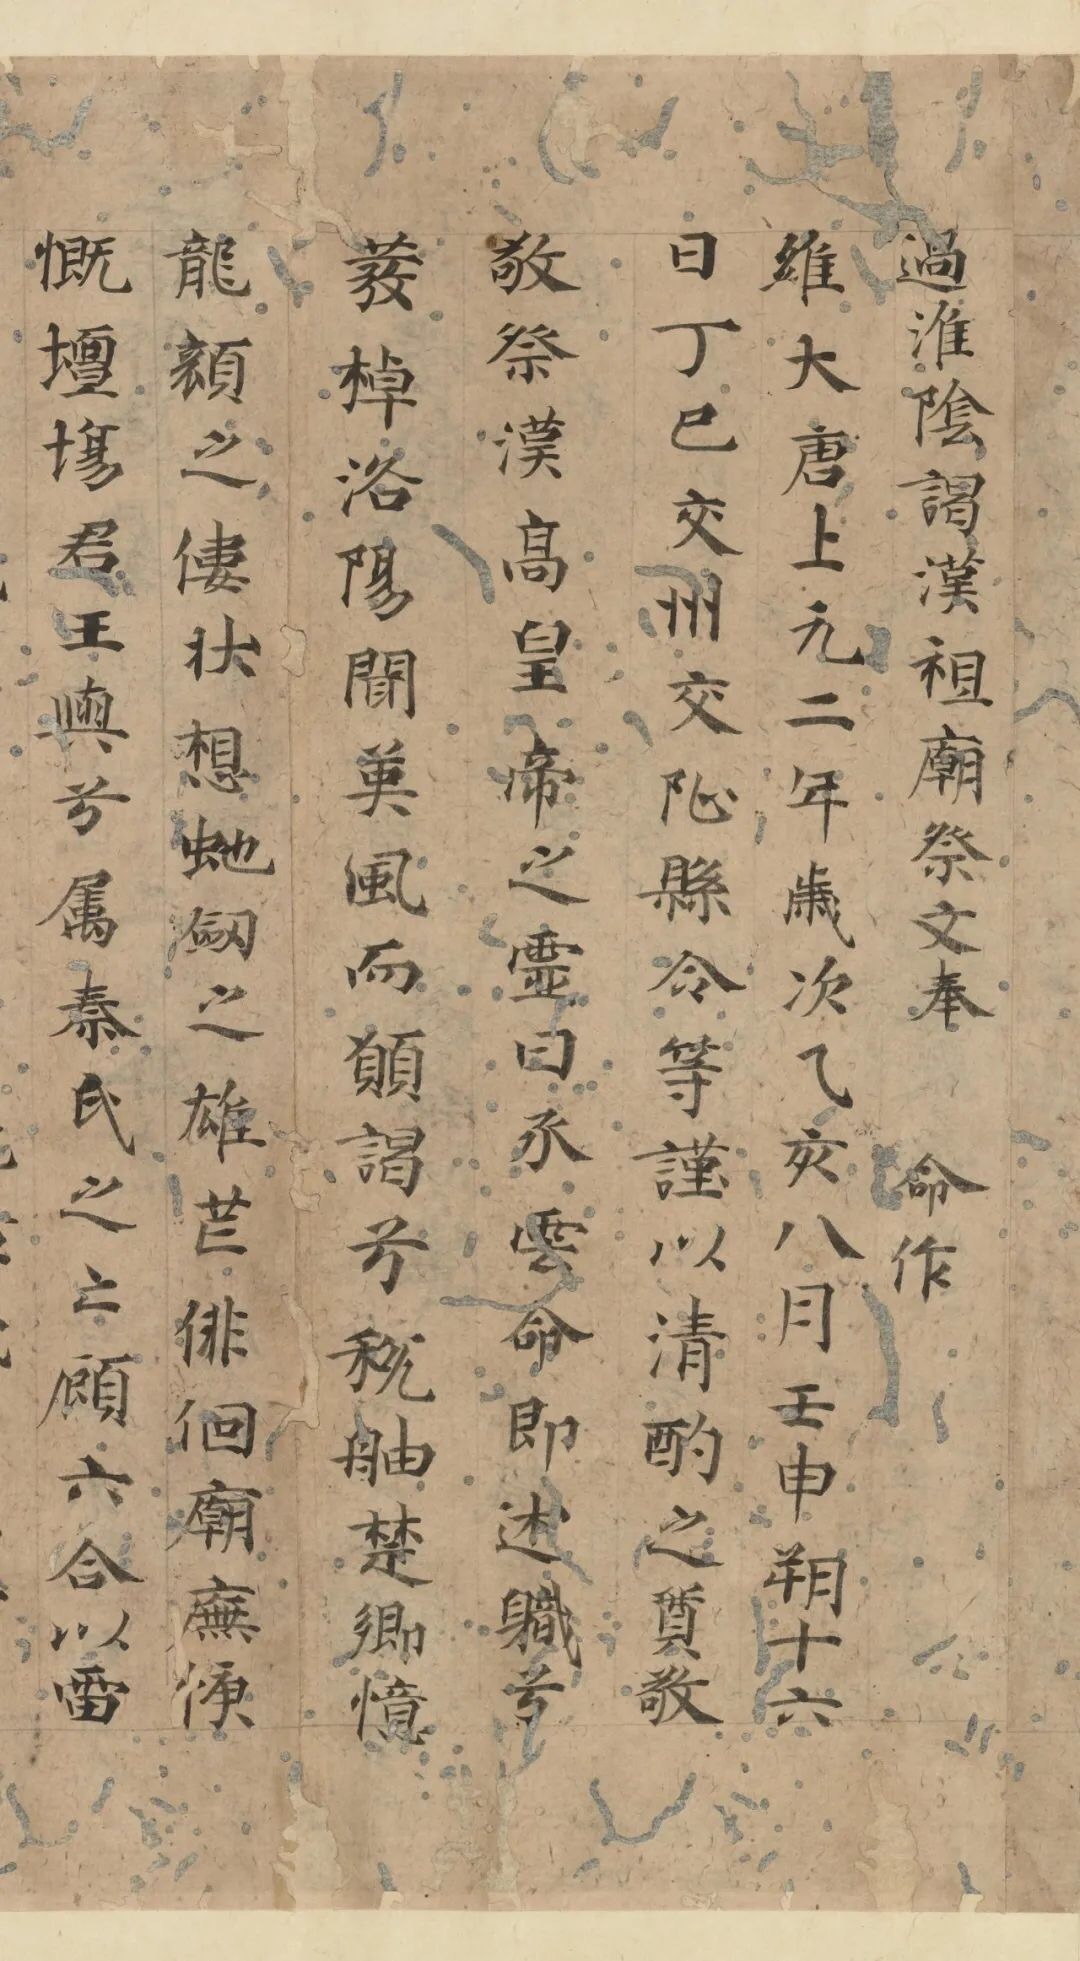 過淮陰謁漢祖廟祭文奉　命作
維大唐上元二年歲次乙亥八月壬申朔十六
日丁巳交州交阯縣令等謹以清酌之奠敬
敬祭漢高皇帝之靈曰承雲命即述職兮
棹洛陽聞英風而願謁兮稅舳楚鄉憶
龍顏之狀想虵劒之雄芒徘徊廟廡
慨壇場君王輿兮属秦氏之亡顧六合以雷